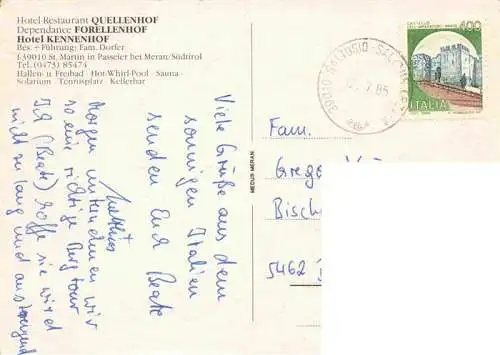 Hotel-Restaurant QUELLENHOF
Dependance FORELLENHOF
Hotel KENNENHOF
Bes. + Führung: Fam. Dorfer
I-39010 St. Martin in Passeier bei Meran/Südtirol
Tel. (0473) 85474
Hallen- u Freibad · Hot-Whirl-Pool · Sauna ·
Solarium · Tennisplatz · Kellerbar
Viele Grüße aus dem
sonnigen Italien
senden Euch Beate
Matthias
Morgen unternehmen wir
so eine richtige Bergtour
Ich (Beate) hoffe sie wird
nicht zu lang und anstrengend
MEDUS MERAN
39010 SALTUSIO - SALTAUS
7.85
400
ITALIA
Fam.
Grego
Bisch
5462